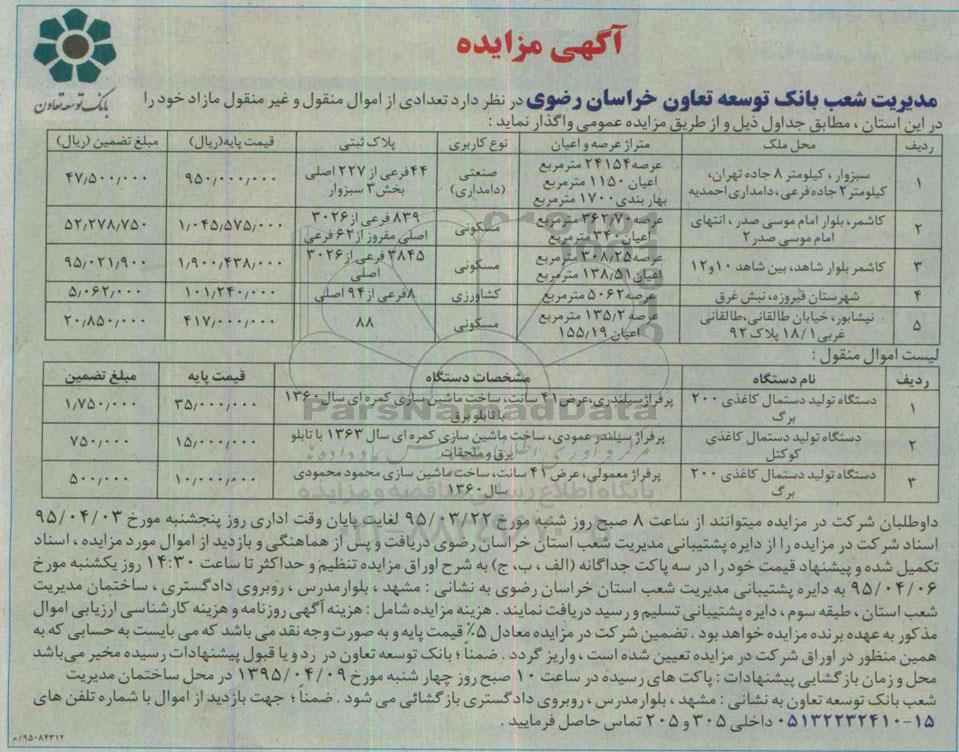 آگهی مزایده
بانک توسعه تعاون
مدیریت شعب بانک توسعه تعاون خراسان رضوی در نظر دارد تعدادی از اموال منقول و غیر منقول مازاد خود را
در این استان ، مطابق جداول ذیل و از طریق مزایده عمومی واگذار نماید :
ردیف محل ملک متراژ عرصه و اعیان نوع کاربری پلاک ثبتی قیمت پایه(ریال) مبلغ تضمین (ریال)
۱ سبزوار ، کیلومتر ۸ جاده تهران، کیلومتر۲ جاده فرعی، دامداری احمدیه عرصه ۲۴۱۵۴ مترمربع اعیان ۱۱۵۰ مترمربع بهاربندی ۱۷۰۰ مترمربع صنعتی (دامداری) ۴۴ فرعی از ۲۲۷ اصلی بخش ۳ سبزوار ۹۵۰/۰۰۰/۰۰۰ ۴۷/۵۰۰/۰۰۰
۲ کاشمر، بلوار امام موسی صدر ، انتهای امام موسی صدر ۲ عرصه ۳۶۲/۷۰ مترمربع اعیان ۳۴۰ مترمربع مسکونی ۸۳۹ فرعی از ۳۰۲۶ اصلی مفروز از ۶۲ فرعی ۱/۰۴۵/۵۷۵/۰۰۰ ۵۲/۲۷۸/۷۵۰
۳ کاشمر بلوار شاهد، بین شاهد ۱۰ و ۱۲ عرصه ۳۰۸/۲۵ مترمربع اعیان ۱۳۸/۵۱ مترمربع مسکونی ۳۸۴۵ فرعی از ۳۰۲۶ اصلی ۱/۹۰۰/۴۳۸/۰۰۰ ۹۵/۰۲۱/۹۰۰
۴ شهرستان فیروزه، نبش غرق عرصه ۵۰۶۲ مترمربع کشاورزی ۸ فرعی از ۹۴ اصلی ۱۰۱/۲۴۰/۰۰۰ ۵/۰۶۲/۰۰۰
۵ نیشابور، خیابان طالقانی، طالقانی غربی ۱۸/۱ پلاک ۹۲ عرصه ۱۳۵/۲ مترمربع اعیان ۱۵۵/۱۹ مسکونی ۸۸ ۴۱۷/۰۰۰/۰۰۰ ۲۰/۸۵۰/۰۰۰
لیست اموال منقول :
ردیف نام دستگاه مشخصات دستگاه قیمت پایه مبلغ تضمین
۱ دستگاه تولید دستمال کاغذی ۲۰۰ برگ پرفراژ سیلندری، عرض ۴۱ سانت، ساخت ماشین سازی کمره ای سال ۱۳۶۰ با تابلو برق ۳۵/۰۰۰/۰۰۰ ۱/۷۵۰/۰۰۰
۲ دستگاه تولید دستمال کاغذی کوکتل پرفراژ سیلندر عمودی، ساخت ماشین سازی کمره ای سال ۱۳۶۳ با تابلو برق و ملحقات ۱۵/۰۰۰/۰۰۰ ۷۵۰/۰۰۰
۳ دستگاه تولید دستمال کاغذی ۲۰۰ برگ پرفراژ معمولی، عرض ۴۱ سانت، ساخت ماشین سازی محمود محمودی سال ۱۳۶۰ ۱۰/۰۰۰/۰۰۰ ۵۰۰/۰۰۰
ParsNamadData
داوطلبان شرکت در مزایده میتوانند از ساعت ۸ صبح روز شنبه مورخ ۹۵/۰۳/۲۲ لغایت پایان وقت اداری روز پنجشنبه مورخ ۹۵/۰۴/۰۳
اسناد شرکت در مزایده را از دایره پشتیبانی مدیریت شعب استان خراسان رضوی دریافت و پس از هماهنگی و بازدید از اموال مورد مزایده ، اسناد
تکمیل شده و پیشنهاد قیمت خود را در سه پاکت جداگانه (الف ، ب، ج) به شرح اوراق مزایده تنظیم و حداکثر تا ساعت ۱۴:۳۰ روز یکشنبه مورخ
۹۵/۰۴/۰۶ به دایره پشتیبانی مدیریت شعب استان خراسان رضوی به نشانی : مشهد ، بلوارمدرس ، روبروی دادگستری ، ساختمان مدیریت
شعب استان ، طبقه سوم ، دایره پشتیبانی تسلیم و رسید دریافت نمایند . هزینه مزایده شامل : هزینه آگهی روزنامه و هزینه کارشناسی ارزیابی اموال
مذکور به عهده برنده مزایده خواهد بود . تضمین شرکت در مزایده معادل ۵٪ قیمت پایه و به صورت وجه نقد می باشد که می بایست به حسابی که به
همین منظور در اوراق شرکت در مزایده تعیین شده است ، واریز گردد . ضمناً ؛ بانک توسعه تعاون در رد و یا قبول پیشنهادات رسیده مخیر می‌باشد
محل و زمان بازگشایی پیشنهادات : پاکت های رسیده در ساعت ۱۰ صبح روز چهار شنبه مورخ ۱۳۹۵/۰۴/۰۹ در محل ساختمان مدیریت
شعب بانک توسعه تعاون به نشانی : مشهد ، بلوارمدرس ، روبروی دادگستری بازگشائی می شود . ضمناً ؛ جهت بازدید از اموال با شماره تلفن های
۰۵۱۳۲۲۳۲۴۱۰-۱۵ داخلی ۳۰۵ و ۲۰۵ تماس حاصل فرمایید .
۹۵۰۸۴۳۱۲/م